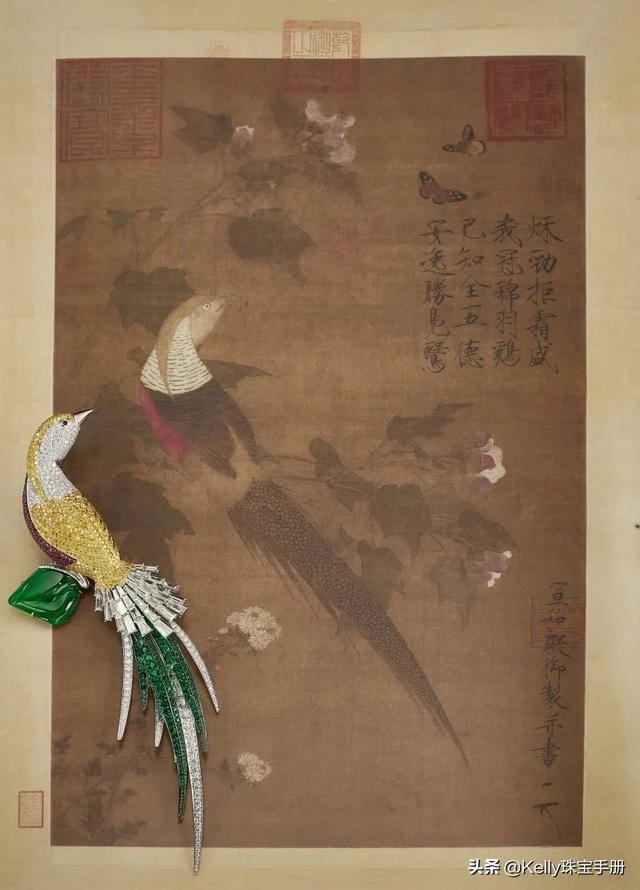 秋勁拒霜盛
峩冠錦羽鷄
已知全五德
安逸勝鳧鷖
宣和殿御製并書
头条 @Kelly珠宝手册